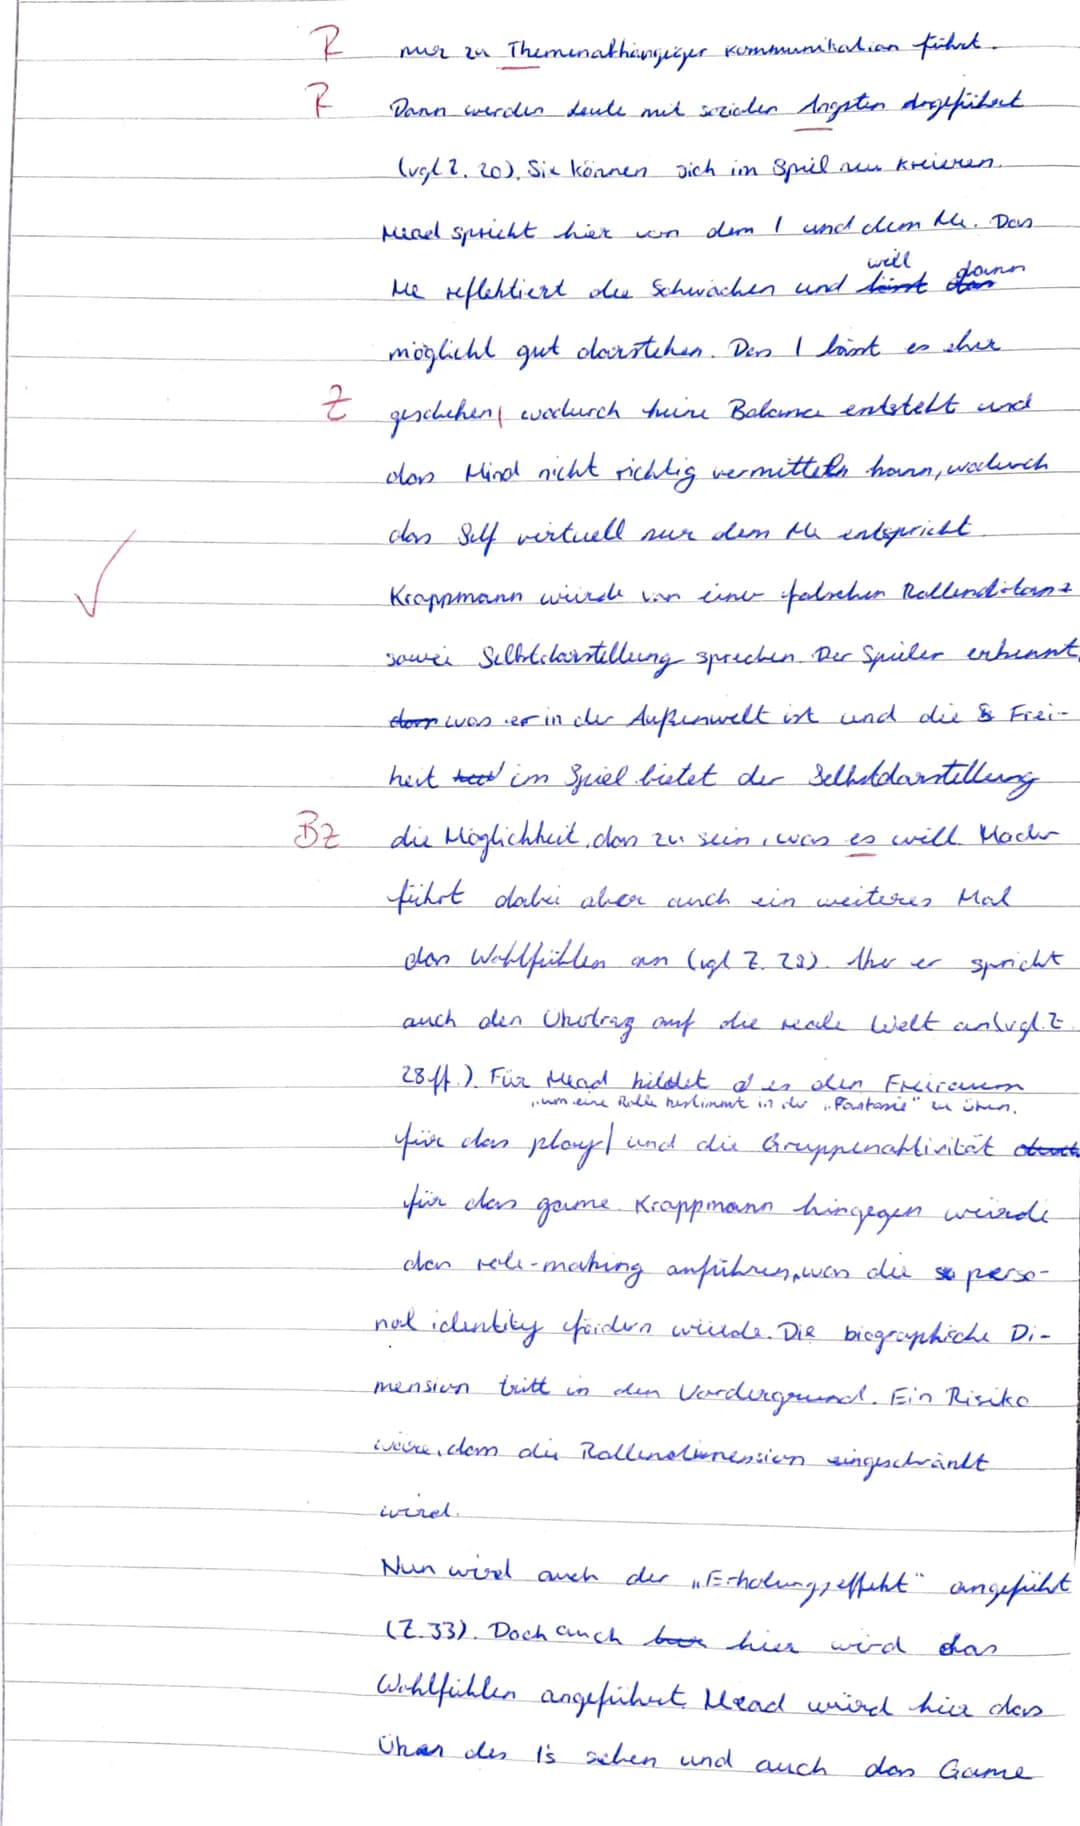 R nur zu Themenabhängiger Kommunikation führt.
R Dann werden Leute mit sozialen Ängsten angeführt
(vgl Z. 20). Sie können sich im Spiel neu kreieren.
Mead spricht hier von dem I und dem Me. Das
will dann
Me reflektiert die Schwächen und lässt das
möglicht gut darstehen. Das I lässt es eher
Z geschehen, wodurch keine Balance entsteht und
das Mind nicht richtig vermitteln kann, wodurch
das Self virtuell nur dem Me entspricht.
Krappmann würde von einer falschen Rollendistanz
sowei Selbstdarstellung sprechen. Der Spieler erkennt,
dass was er in der Außenwelt ist und die S Frei-
heit im Spiel bietet der Selbstdarstellung
Bz die Möglichkeit, das zu sein, was es will. Macho
führt dabei aber auch ein weiteres Mal
das Wohlfühlen an (vgl Z. 28). Aber er spricht
auch den Übertrag auf die reale Welt an (vgl. Z.
28ff.). Für Mead bildet d es den Freiraum
, um eine Rolle bestimmt in der „Fantasie" zu üben.
für das play und die Gruppenaktivität durch
für das game. Krappmann hingegen würde
das role-making anführen, was die so perso-
nal identity fördern würde. Die biographische Di-
mension tritt in den Vordergrund. Ein Risiko
wäre, dass die Rollendimension eingeschränkt
wird.
Nun wird auch der „Erholungseffekt" angeführt
(Z. 33). Doch auch hier wird das
Wohlfühlen angeführt. Mead würd hier das
Üben des I's sehen und auch das Game